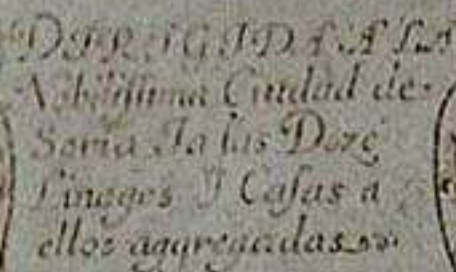 DIRIGIDA A LA
Nobilissima Ciudad de
Soria Ja las Doze
Linages J Casas a
ellos aggregadas